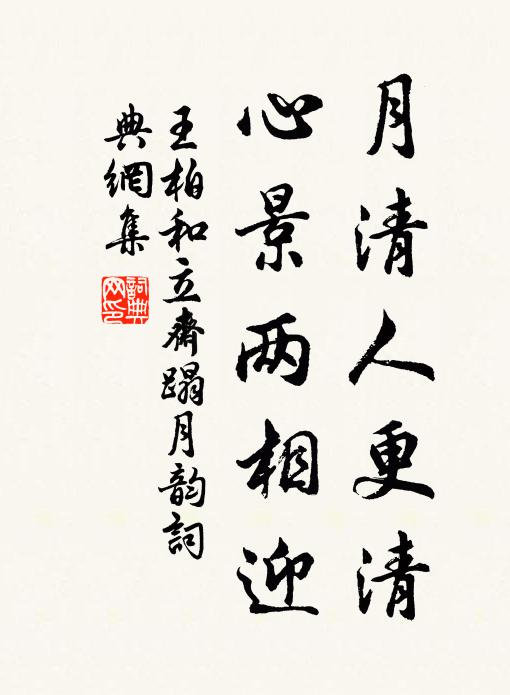 月清人更清
心景两相迎
王柏和立齋蹋月韵詞
典網集
詞典
网印